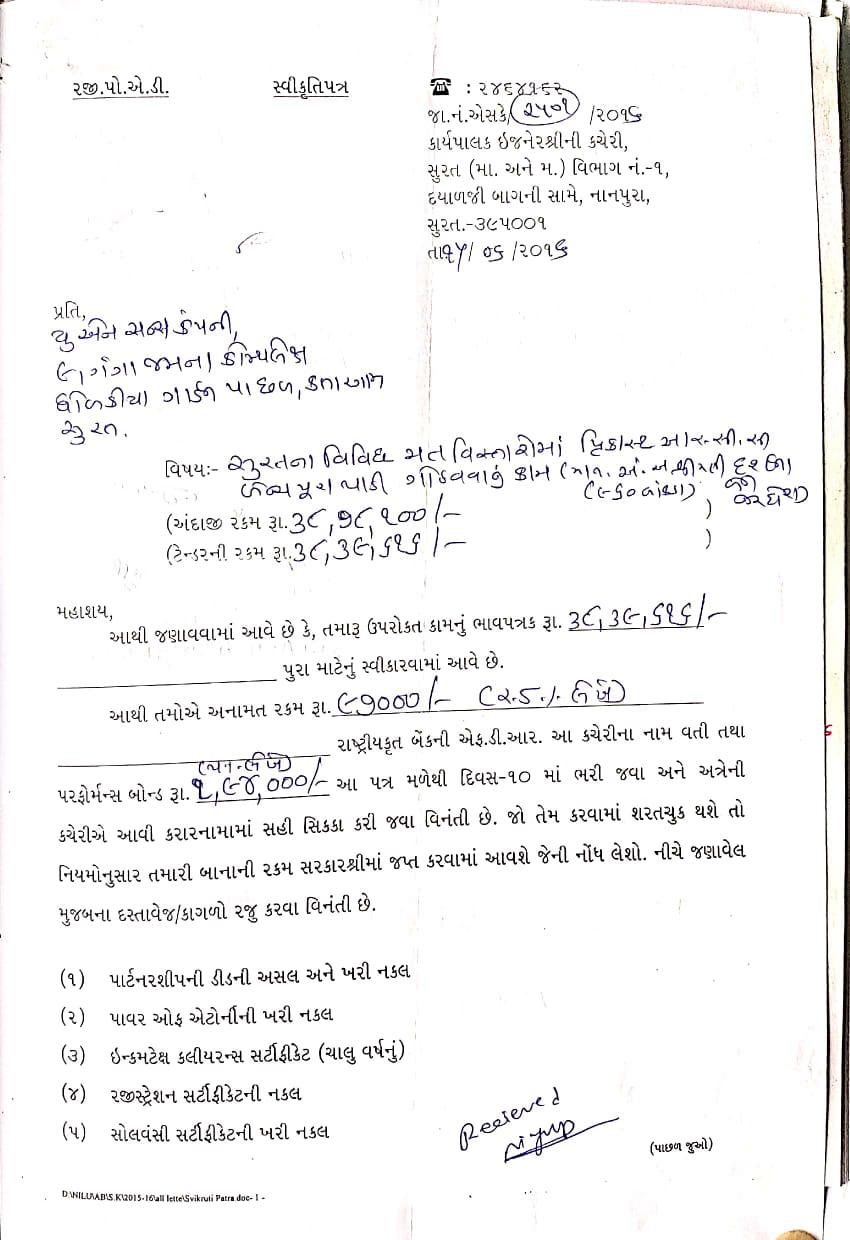 રજી.પો.એ.ડી. સ્વીકૃતિપત્ર ☎ : ૨૪૬૪૧૬૨
જા.નં.એસકે/૨૫૦૧/૨૦૧૬
કાર્યપાલક ઇજનેરશ્રીની કચેરી,
સુરત (મા. અને મ.) વિભાગ નં.-૧,
દયાળજી બાગની સામે, નાનપુરા,
સુરત.-૩૯૫૦૦૧
તા૧૫/ ૦૬ /૨૦૧૬
પ્રતિ,
યુ એન સન્સ કંપની,
ગંગા જમના કોમ્પલેક્ષ
ધોળકીયા ગાર્ડન પાછળ, કતારગામ
સુરત.
વિષય:- સુરતના વિવિધ મત વિસ્તારોમાં પ્રિકાસ્ટ આર.સી.સી
પુરા પાડી ગોઠવવાનું કામ
(અંદાજી રકમ રૂા.૩૮,૧૮,૧૦૦/- )
(ટેન્ડરની રકમ રૂા.૩૮,૩૯,૬૧૬/- )
મહાશય,
આથી જણાવવામાં આવે છે કે, તમારૂ ઉપરોકત કામનું ભાવપત્રક રૂા. ૩૮,૩૯,૬૧૬/-
પુરા માટેનું સ્વીકારવામાં આવે છે.
આથી તમોએ અનામત રકમ રૂા. ૯૭૦૦૦/- (૨.૫.%. લેખે)
રાષ્ટ્રીયકૃત બેંકની એફ.ડી.આર. આ કચેરીના નામ વતી તથા
પરફોર્મન્સ બોન્ડ રૂા. ૧,૯૪,૦૦૦/- આ પત્ર મળેથી દિવસ-૧૦ માં ભરી જવા અને અત્રેની
કચેરીએ આવી કરારનામામાં સહી સિકકા કરી જવા વિનંતી છે. જો તેમ કરવામાં શરતચુક થશે તો
નિયમોનુસાર તમારી બાનાની રકમ સરકારશ્રીમાં જપ્ત કરવામાં આવશે જેની નોંધ લેશો. નીચે જણાવેલ
મુજબના દસ્તાવેજ/કાગળો રજુ કરવા વિનંતી છે.
(૧) પાર્ટનરશીપની ડીડની અસલ અને ખરી નકલ
(૨) પાવર ઓફ એટોર્નીની ખરી નકલ
(૩) ઇન્કમટેક્ષ કલીયરન્સ સર્ટીફીકેટ (ચાલુ વર્ષનું)
(૪) રજીસ્ટ્રેશન સર્ટીફીકેટની નકલ
(૫) સોલવંસી સર્ટીફીકેટની ખરી નકલ
Receieved
(પાછળ જુઓ)
D:\NILU\AB\S.K\2015-16\all lette\Svikruti Patra.doc- 1 -